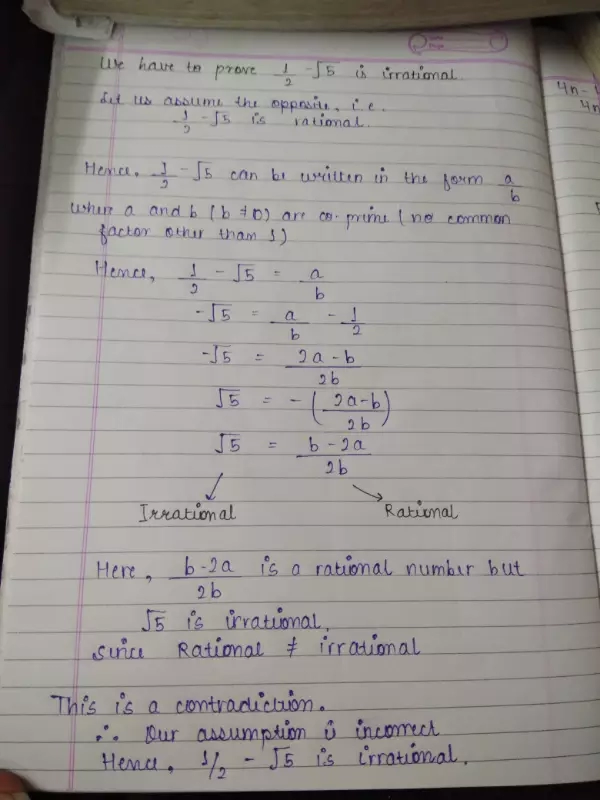 We have to prove 1/2 - √5 is irrational.
Let us assume the opposite, i.e.
1/2 - √5 is rational.
Hence, 1/2 - √5 can be written in the form a/b
where a and b (b ≠ 0) are co-prime (no common
factor other than 1)
Hence, 1/2 - √5 = a/b
-√5 = a/b - 1/2
-√5 = (2a - b)/2b
√5 = -((2a-b)/2b)
√5 = (b - 2a)/2b
Irrational Rational
Here, (b-2a)/2b is a rational number but
√5 is irrational.
Since Rational ≠ irrational
This is a contradiction.
∴ Our assumption is incorrect
Hence, 1/2 - √5 is irrational.
4n